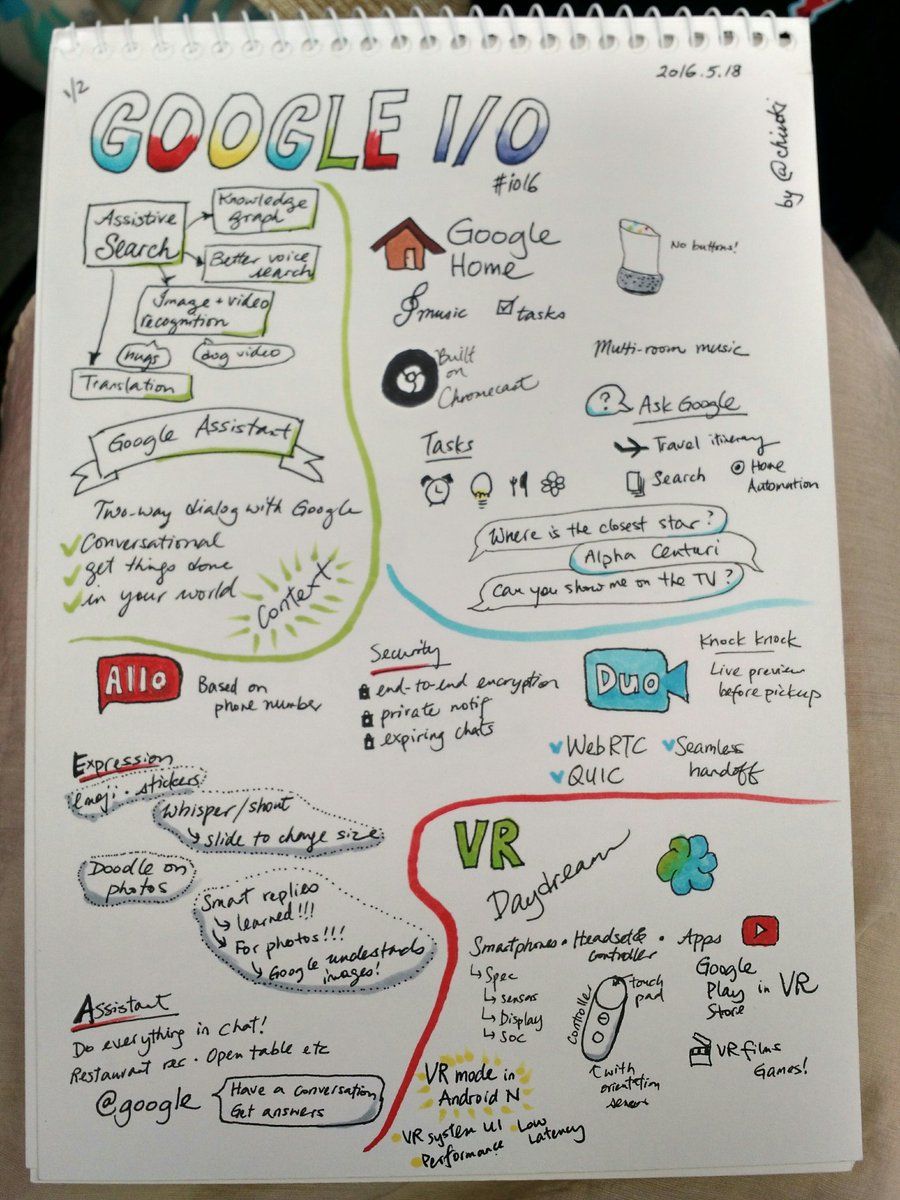 1/2
2016.5.18
GOOGLE I/O
#io16
by @chiuki
Assistive
Search
Knowledge
graph
Better voice
search
Image + video
recognition
hugs
dog video
Translation
Google Assistant
Two-way dialog with Google
Conversational
get things done
in your world
Context
Google
Home
No buttons!
music
tasks
Built
on
Chromecast
Multi-room music
?
Ask Google
Tasks
Travel itinerary
Search
Home
Automation
Where is the closest star?
Alpha Centuri
Can you show me on the TV?
Allo
Based on
phone number
Security
end-to-end encryption
private notif
expiring chats
Duo
Knock knock
Live preview
before pickup
WebRTC
QUIC
Seamless
handoff
Expression
emoji · stickers
Whisper/shout
slide to change size
Doodle on
photos
Smart replies
learned!!!
For photos!!!
Google understands
images!
Assistant
Do everything in chat!
Restaurant rec · Open table etc
@google
Have a conversation
Get answers
VR
Daydream
Smartphones · Headset &
controller · Apps
Spec
sensors
Display
SoC
Controller
touch
pad
with
orientation
sensor
Google
Play in VR
Store
VR films
Games!
VR mode in
Android N
VR system UI
Low
Latency
Performance